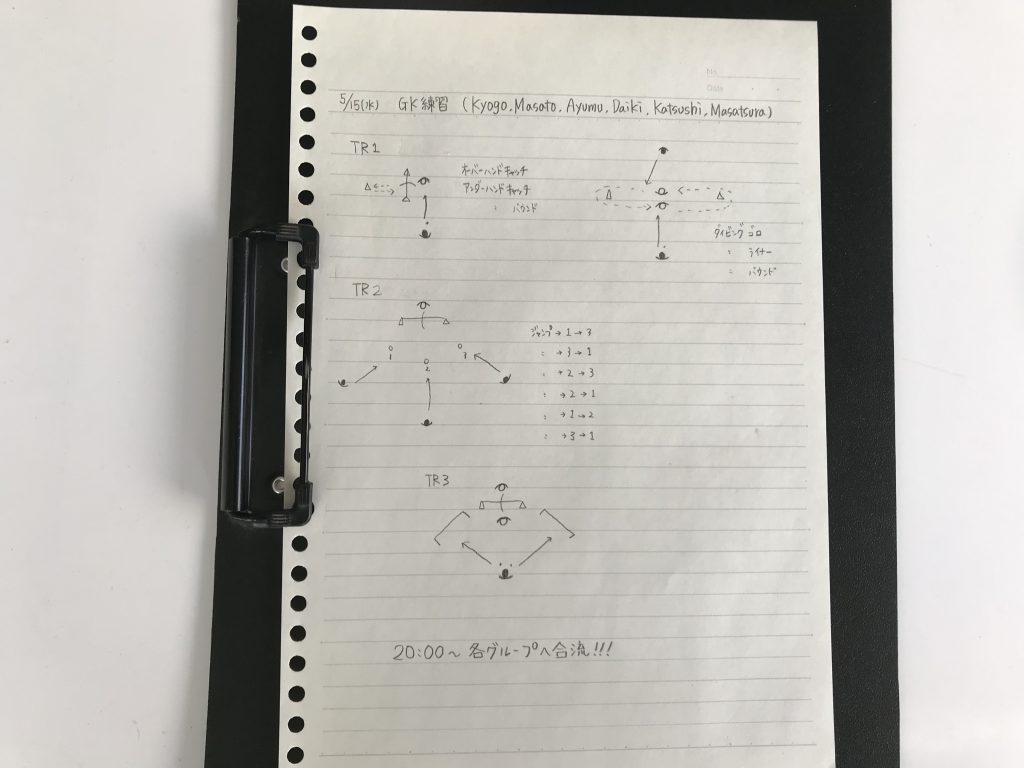 No.
Date
5/15(水) GK練習 (Kyogo, Masato, Ayumu, Daiki, Katsushi, Masatsura)
TR1
オーバーハンドキャッチ
アンダーハンドキャッチ
〃 バウンド
ダイビング ゴロ
〃 ライナー
〃 バウンド
TR2
1
2
3
ジャンプ→1→3
〃 →3→1
〃 →2→3
〃 →2→1
〃 →1→2
〃 →3→1
TR3
20:00〜 各グループへ合流!!!